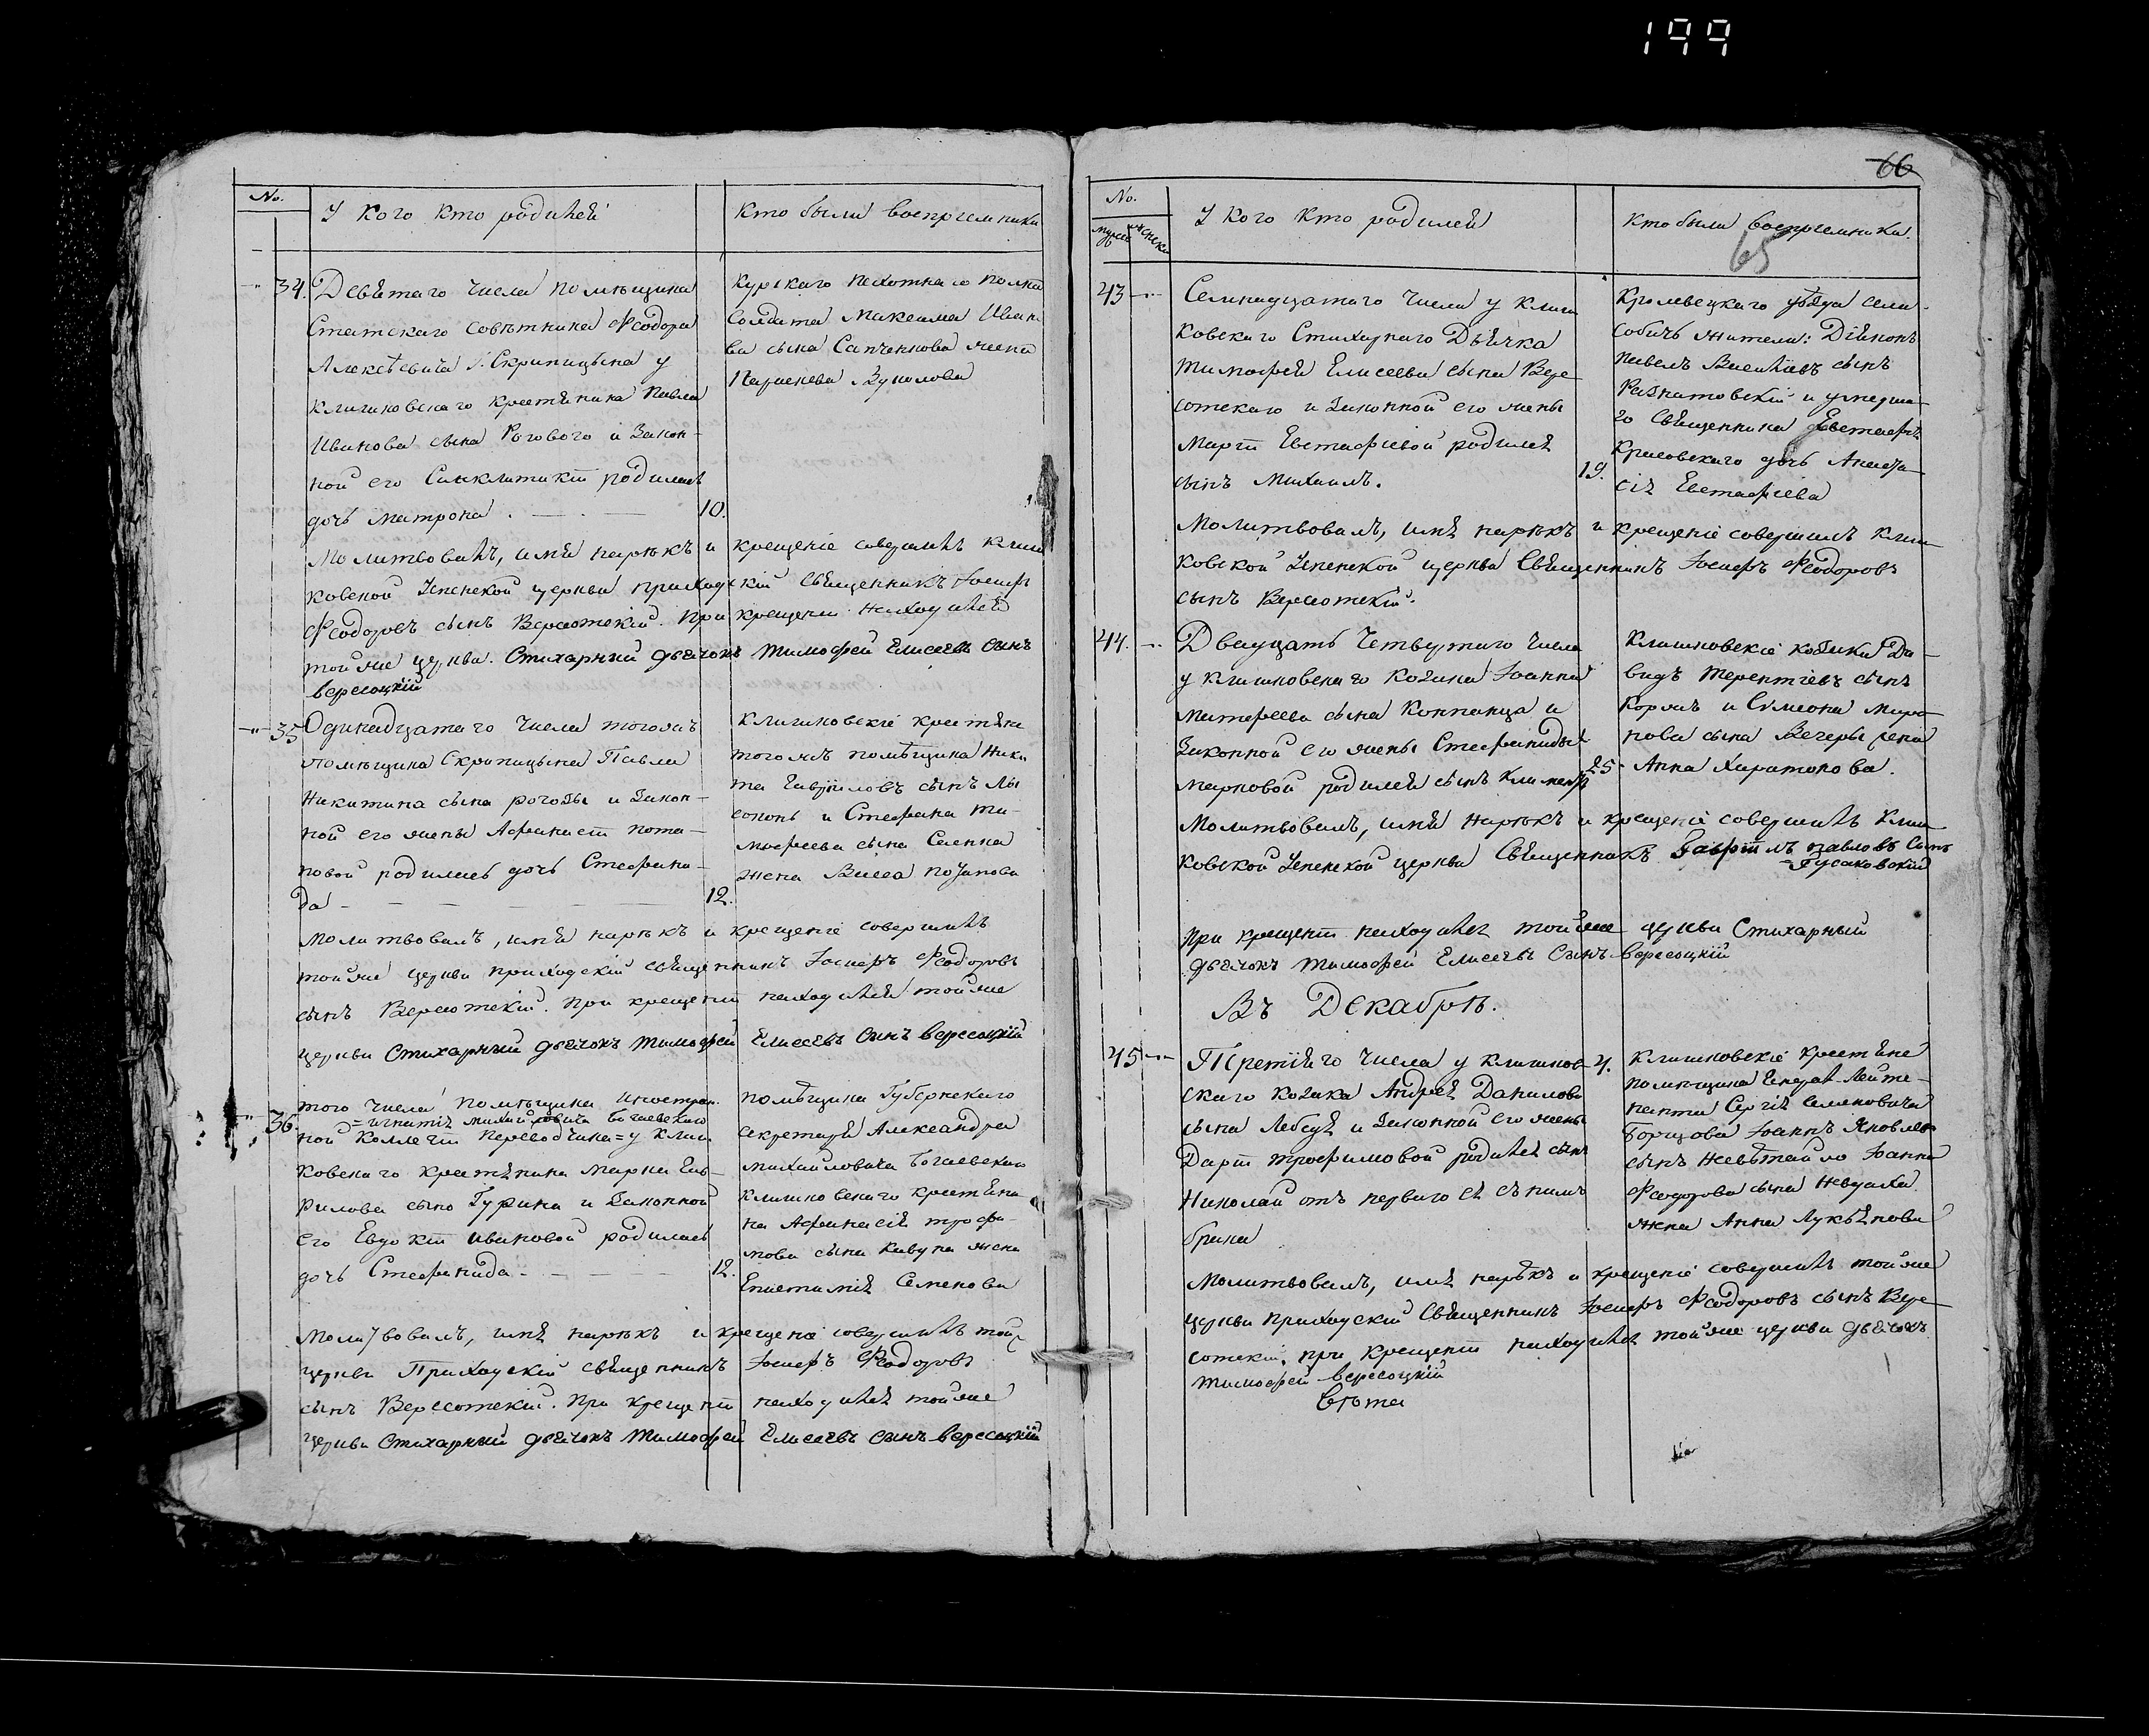 199
No.
У кого кто родился
Кто были воспріемники
34.
Девятаго числа помѣщика
Статскаго совѣтника Феодора
Алексѣевича Скрипицына у
клишковскаго крестянина Павла
Иванова сына Рогового и закон-
ной его Синклитикіи родилась
дочь Матрона
10.
Курскаго пехотнаго полка
солдата Максима Иван
ва сына жена
молитвовалъ, имя нарѣкъ и крещеніе совершилъ клиш
ковской Успенской церкви приходскій священникъ Іосифъ
Феодоровъ сынъ Вересотскій. При крещеніи находился
той же церкви. Стихарный дьячокъ Тимофей Елисеевъ сынъ
вересоцкій
35
Одинадцатаго числа тогожъ
помѣщика Скрипицына Павла
Никитина сына рогозы и закон-
ной его жены Афанасіи пота-
повой родилась дочь Стефани-
да
12.
Клишковскіе крестяне
тогожъ помѣщика Ники
та Гавріиловъ сынъ
и Стефана Ти-
мофеева сына
жена Васса
молитвовалъ, имя нарѣкъ и крещеніе совершилъ
той же церкви приходскій священникъ Іосифъ Феодоровъ
сынъ Вересотскій. При крещеніи находился той же
церкви Стихарный дьячокъ Тимофей Елисеевъ сынъ вересоцкій
36.
того числа помѣщика иностран
= игнатія михайловича Богаевского
ной Коллегіи переводчика = у клиш
ковскаго крестянина Марка Гав-
рилова сына Гурина и законной
его Евдокіи ивановой родилась
дочь Стефанида
12.
помѣщика Губернскаго
секретаря Александра
михайловича Богаевскаго
клишковскаго крестяни
на Афанасія трофи-
мова сына Кавуна жена
Епистимія Семенова
молитвовалъ, имя нарѣкъ и крещеніе совершилъ той
церкви Приходскій священникъ Іосифъ Феодоровъ
сынъ Вересотскій. При крещеніи находился той же
церкви Стихарный дьячокъ Тимофей Елисеевъ сынъ вересоцкій
66
No.
мужес
женска
У кого кто родился
Кто были воспріемники.
65
43
Семнадцатаго числа у клиш
ковскаго Стихарнаго Дьячка
Тимофея Елисеева сына Вере
сотскаго и законной его жены
Марфы Евстафіевой родился
сынъ Михаилъ.
19.
Кролевецкаго уѣзда села
собичъ жители: Діяконъ
Павелъ Василіевъ сынъ
и умерша-
го священника Евстафія
Красовскаго дочь Анаста-
сія Евстафіева
Молитвовалъ, имя нарѣкъ и крещеніе совершилъ клиш
ковской Успенской церкви Священникъ Іосифъ Феодоровъ
сынъ Вересотскій.
44.
Двадцать четвертаго числа
у клишковскаго козака Іоанна
Матфеева сына Коптяца и
законной его жены Стефаниды
марковой родился сынъ Климентъ
25
Клишковскіе козаки Да-
видъ Терентіевъ сынъ
Коржъ и Симеона Миро
нова сына Вечеры жена
Анна Харитонова.
Молитвовалъ, имя нарѣкъ и крещеніе совершилъ клиш
ковской Успенской церкви Священникъ Гавріилъ Павловъ сынъ
Русаковскій
При крещеніи находился той же церкви Стихарный
дьячокъ Тимофей Елисеевъ Сынъ вересоцкій
Въ Декабрѣ.
45
Третіяго числа у клишков
скаго козака Андрея Данилова
сына Лебедя и законной его жены
Дарьи Трофимовой родился сынъ
Николай отъ перваго
брака
4.
Клишковскіе крестяне
помѣщика Генерал Лейте-
нанта Сергія Семеновича
Борщова Іоаннъ Яковлев
сынъ Іоанна
Феодорова сына
жена Анна Лукянова
Молитвовалъ, имя нарѣкъ и крещеніе совершилъ той же
церкви приходскій Священникъ Іосифъ Феодоровъ сынъ Вере
сотскій. при крещеніи находился той же церкви дьячокъ
Тимофей Вересоцкій